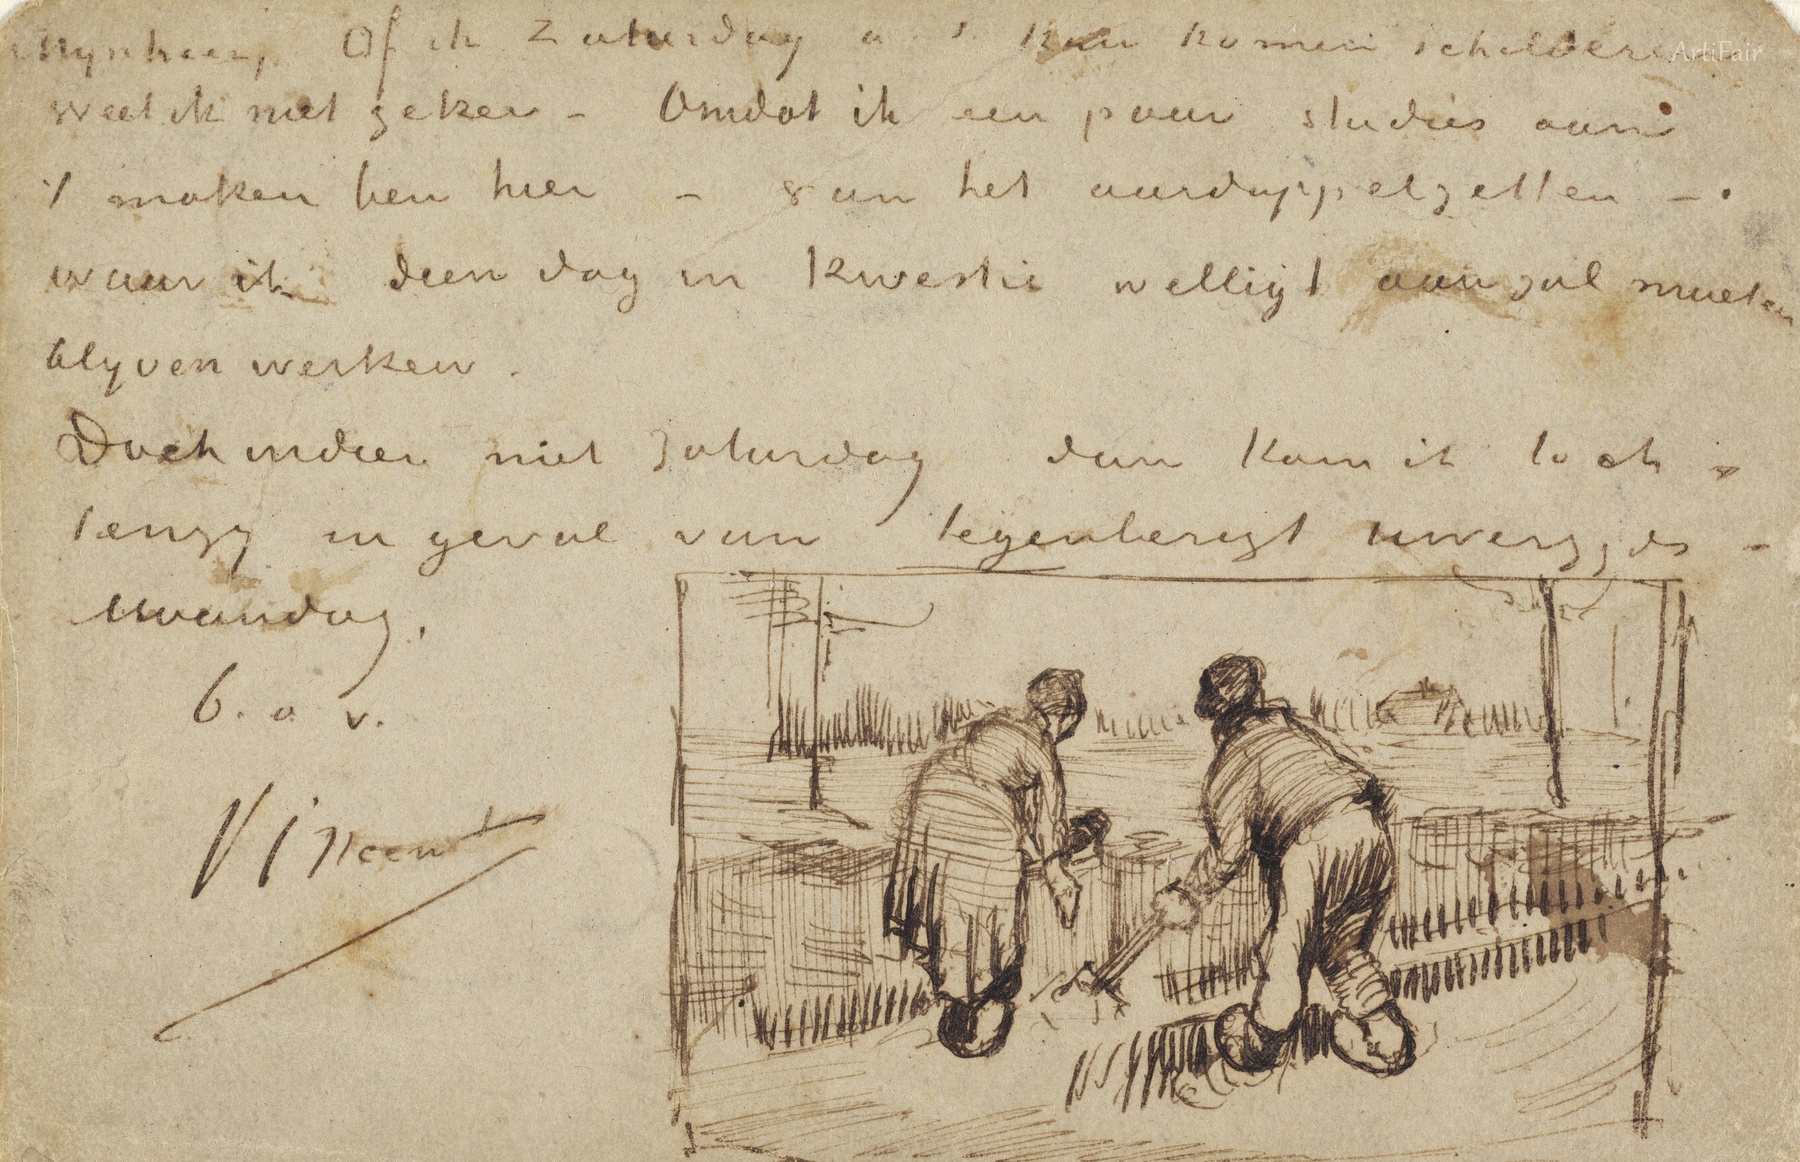 Mynheer, Of ik Zaturdag a.s. kan komen schilderen
weet ik niet zeker – Omdat ik een paar studies aan
't maken ben hier – van het aardappelzetten –
waar ik dien dag in kwestie welligt aan zal moeten
blyven werken.
Doch indien niet Zaturdag dan kom ik toch –
tenzy in geval van tegenberigt uwerzyds –
Maandag.
b. a v.
Vincent
ArtiFair